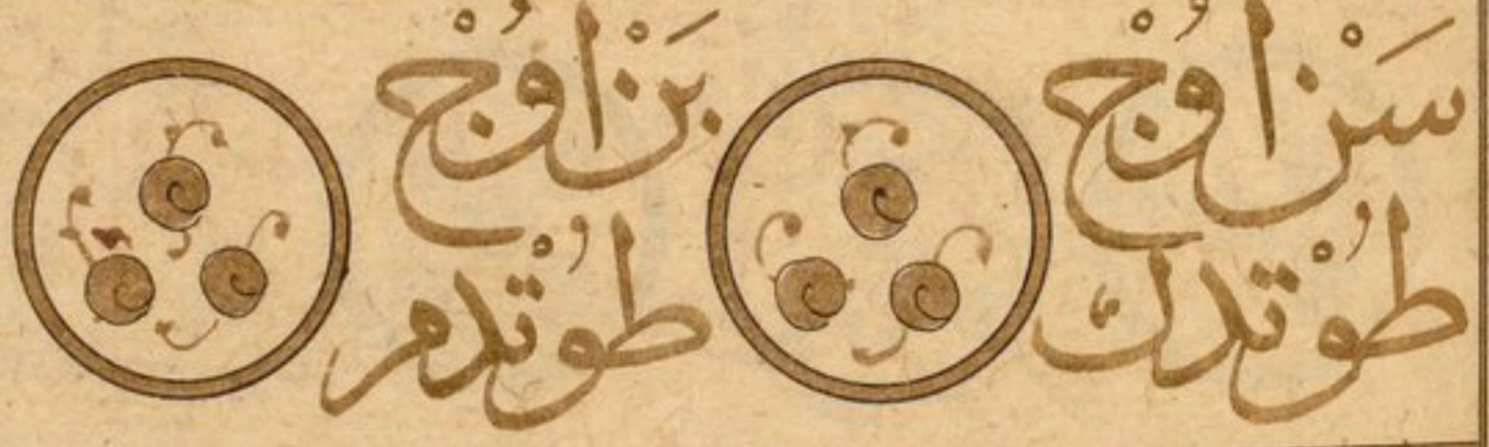 سَنْ اوُجْ
طُوتْدڭ
بَنْ اوُجْ
طُوتْدم